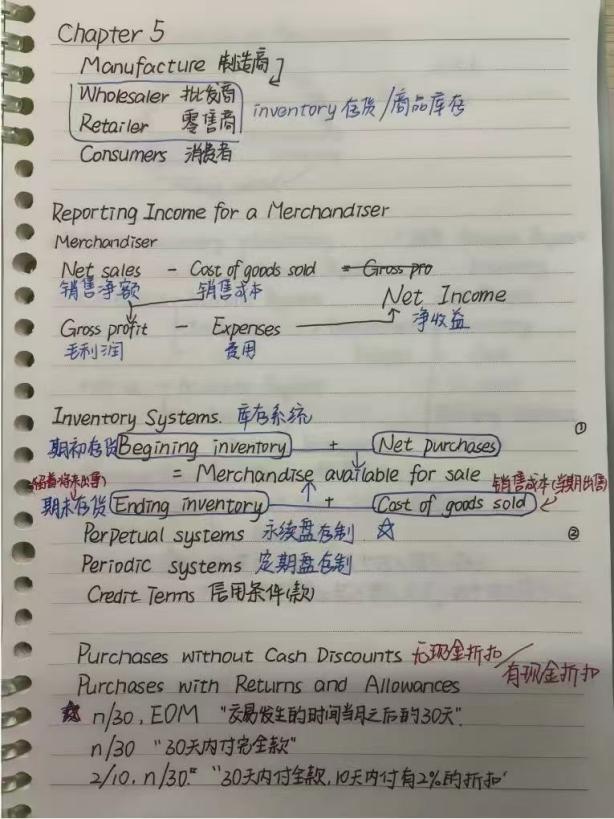 Chapter 5
Manufacture 制造商
Wholesaler 批发商
Retailer 零售商
inventory 存货/商品库存
Consumers 消费者
Reporting Income for a Merchandiser
Merchandiser
Net sales - Cost of goods sold = Gross pro
销售净额 销售成本
Net Income
净收益
Gross profit - Expenses
毛利润 费用
Inventory Systems. 库存系统
①
期初存货 Begining inventory + Net purchases
= Merchandise available for sale
(留着将来出售) 销售成本(当期出售)
期末存货 Ending inventory + Cost of goods sold
Perpetual systems 永续盘存制 ☆
②
Periodic systems 定期盘存制
Credit Terms 信用条件(款)
Purchases without Cash Discounts 无现金折扣/
有现金折扣
Purchases with Returns and Allowances
☆ n/30, EOM "交易发生的时间当月之后的30天".
n/30 "30天内付完全款"
2/10, n/30." "30天内付全款,10天内付有2%的折扣'